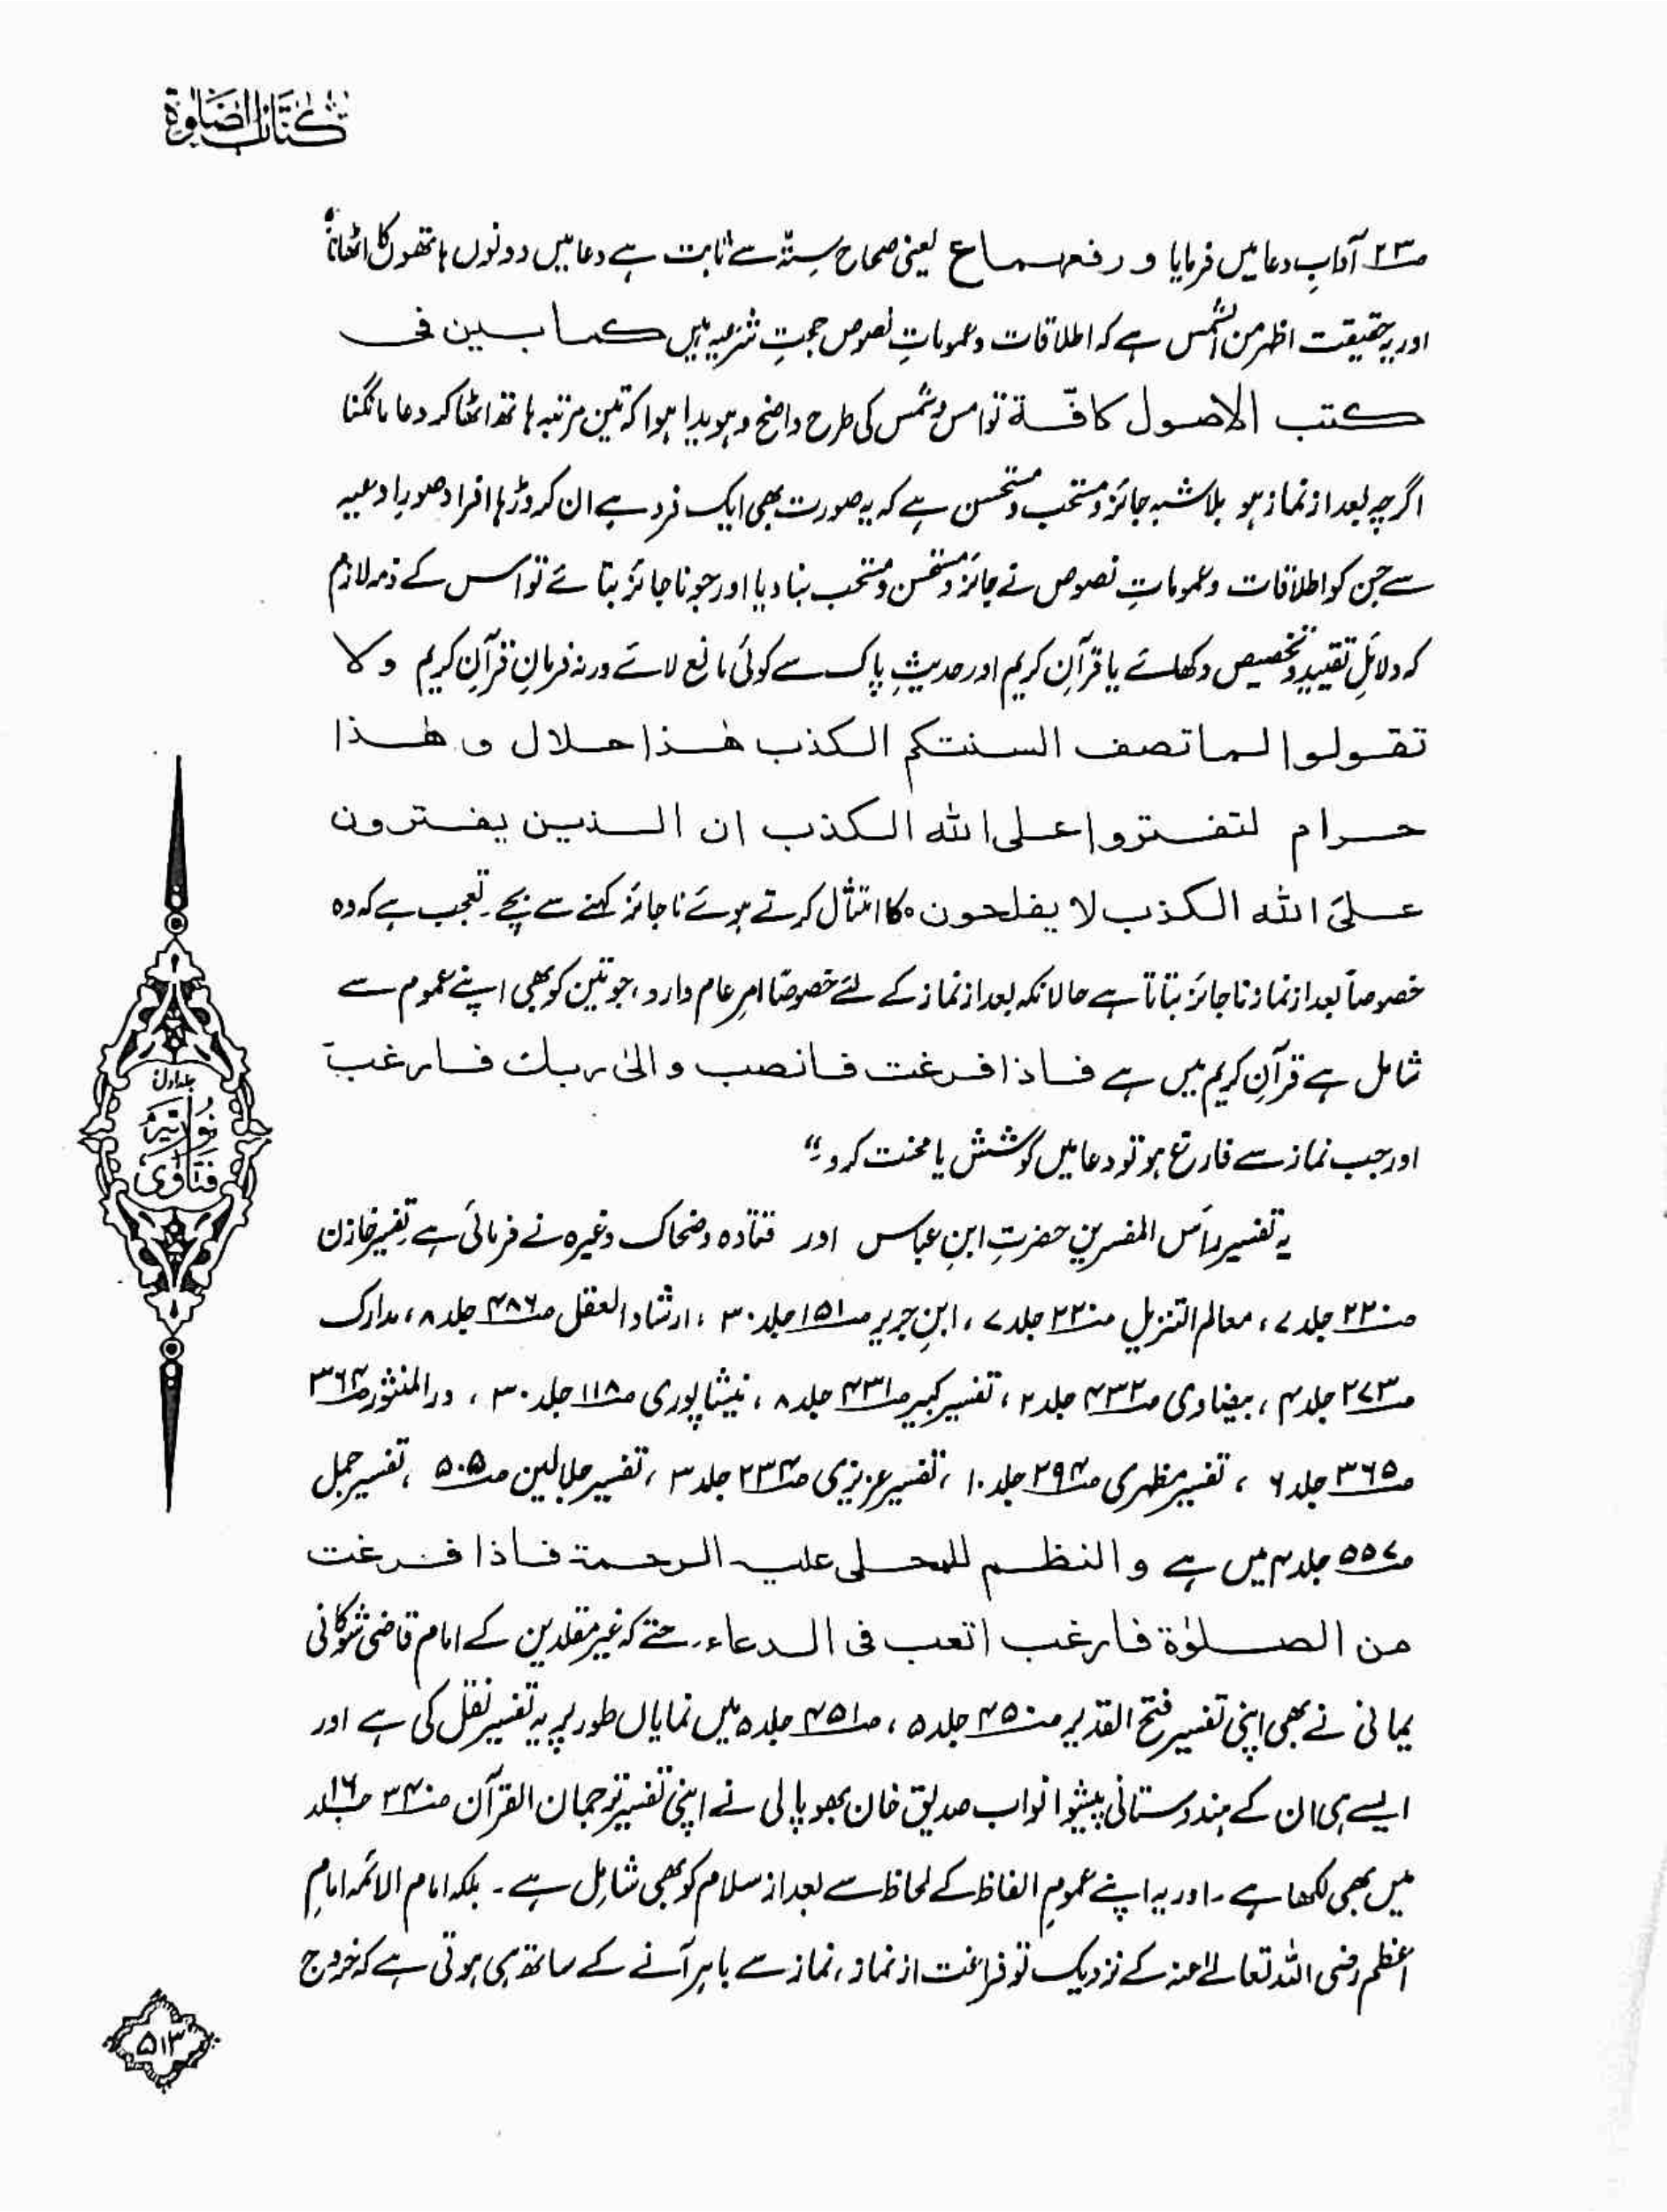 کتاب الصلوٰۃ
ص۲۳ آدابِ دعا میں فرمایا و رفعہما ع یعنی صحاح ستہ سے ثابت ہے دعا میں دونوں ہاتھوں کا اٹھانا
اور یہ حقیقت اظہر من الشمس ہے کہ اطلاقات و عموماتِ نصوص حجتِ شرعیہ ہیں کما بین فی
کتب الاصول کافّۃ تو امس و شمس کی طرح واضح و ہویدا ہوا کہ تین مرتبہ ہاتھ اٹھا کر دعا مانگنا
اگرچہ بعد از نماز ہو بلاشبہ جائز و مستحب و مستحسن ہے کہ یہ صورت بھی ایک فرد ہے ان کروڑہا افراد صورِ ادعیہ
سے جن کو اطلاقات و عموماتِ نصوص نے جائز و مستحسن و مستحب بنا دیا اور جو ناجائز بتائے تو اس کے ذمہ لازم
کہ دلائلِ تقیید و تخصیص دکھائے یا قرآنِ کریم اور حدیثِ پاک سے کوئی مانع لائے ورنہ فرمانِ قرآنِ کریم ولا
تقولوا لما تصف السنتکم الکذب ھٰذا حلال و ھٰذا
حرام لتفتروا علی اللہ الکذب ان الذین یفترون
علی اللہ الکذب لا یفلحون ہ کا امتثال کرتے ہوئے ناجائز کہنے سے بچے۔ تعجب ہے کہ وہ
خصوصاً بعد از نماز ناجائز بتاتا ہے حالانکہ بعد از نماز کے لئے خصوصًا امرِ عام وارد، جو تین کو بھی اپنے عموم سے
شامل ہے قرآنِ کریم میں ہے فاذا فرغت فانصب و الیٰ ربك فارغب
اور جب نماز سے فارغ ہو تو دعا میں کوشش یا محنت کرو۔“
یہ تفسیر رأس المفسرین حضرتِ ابنِ عباس اور قتادہ و ضحاک وغیرہ نے فرمائی ہے۔ تفسیر خازن
ص۲۲۰ جلد ۷، معالم التنزیل ص۲۲۰ جلد ۷، ابنِ جریر ص۱۵۱ جلد ۳۰، ارشاد العقل ص۴۸۶ جلد ۸، مدارک
ص۲۷۳ جلد ۴، بیضاوی ص۴۳۲ جلد ۲، تفسیر کبیر ص۴۳۱ جلد ۸، نیشاپوری ص۱۱۸ جلد ۳۰، در المنثور ص۳۶۴
ص۳۶۵ جلد ۶، تفسیر مظہری ص۲۹۴ جلد ۱۰، تفسیر عزیزی ص۲۳۴ جلد ۳، تفسیر جلالین ص۵۰۵، تفسیر جمل
ص۵۵۷ جلد ۴ میں ہے والنظم للمحلی علیہ الرحمۃ فاذا فرغت
من الصلوٰۃ فارغب اتعب فی الدعاء۔ حتے کہ غیر مقلدین کے امام قاضی شوکانی
یمانی نے بھی اپنی تفسیر فتح القدیر ص۴۵۰ جلد ۵، ص۴۵۱ جلد ۵ میں نمایاں طور پر یہ تفسیر نقل کی ہے اور
ایسے ہی ان کے ہندوستانی پیشوا نواب صدیق خان بھوپالی نے اپنی تفسیر ترجمان القرآن ص۳۴۰ جلد ۱۶
میں بھی لکھا ہے۔ اور یہ اپنے عمومِ الفاظ کے لحاظ سے بعد از سلام کو بھی شامل ہے۔ بلکہ امام الائمہ امامِ
اعظم رضی اللہ تعالےٰ عنہ کے نزدیک تو فراغت از نماز، نماز سے باہر آنے کے ساتھ ہی ہوتی ہے کہ خروج
جلد اول
نوریہ
فتاویٰ
۵۱۳